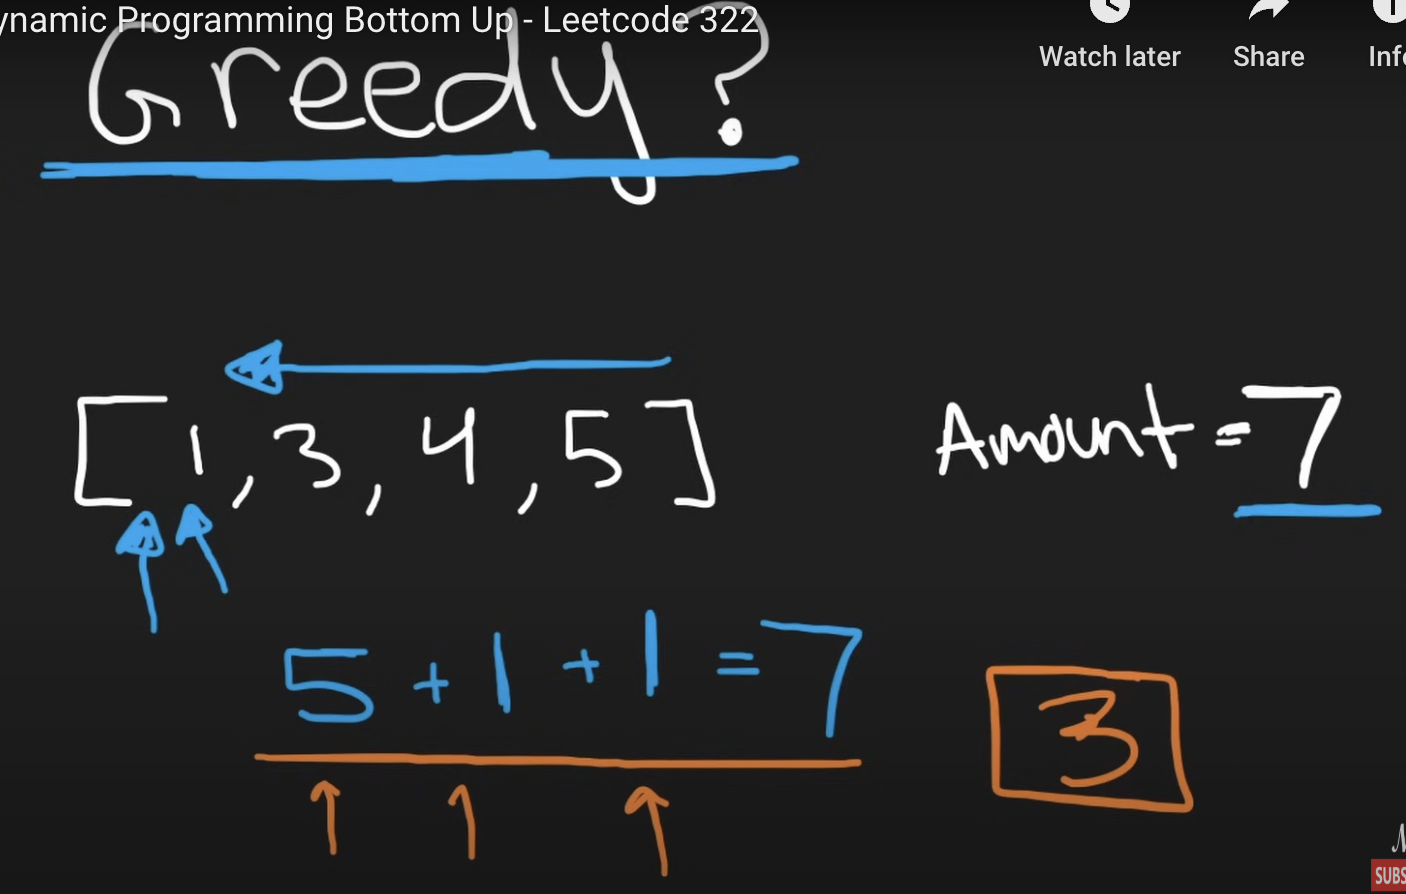 ynamic Programming Bottom Up - Leetcode 322
Watch later Share Inf
Greedy?
[1, 3, 4, 5] Amount = 7
5 + 1 + 1 = 7
3
SUBS